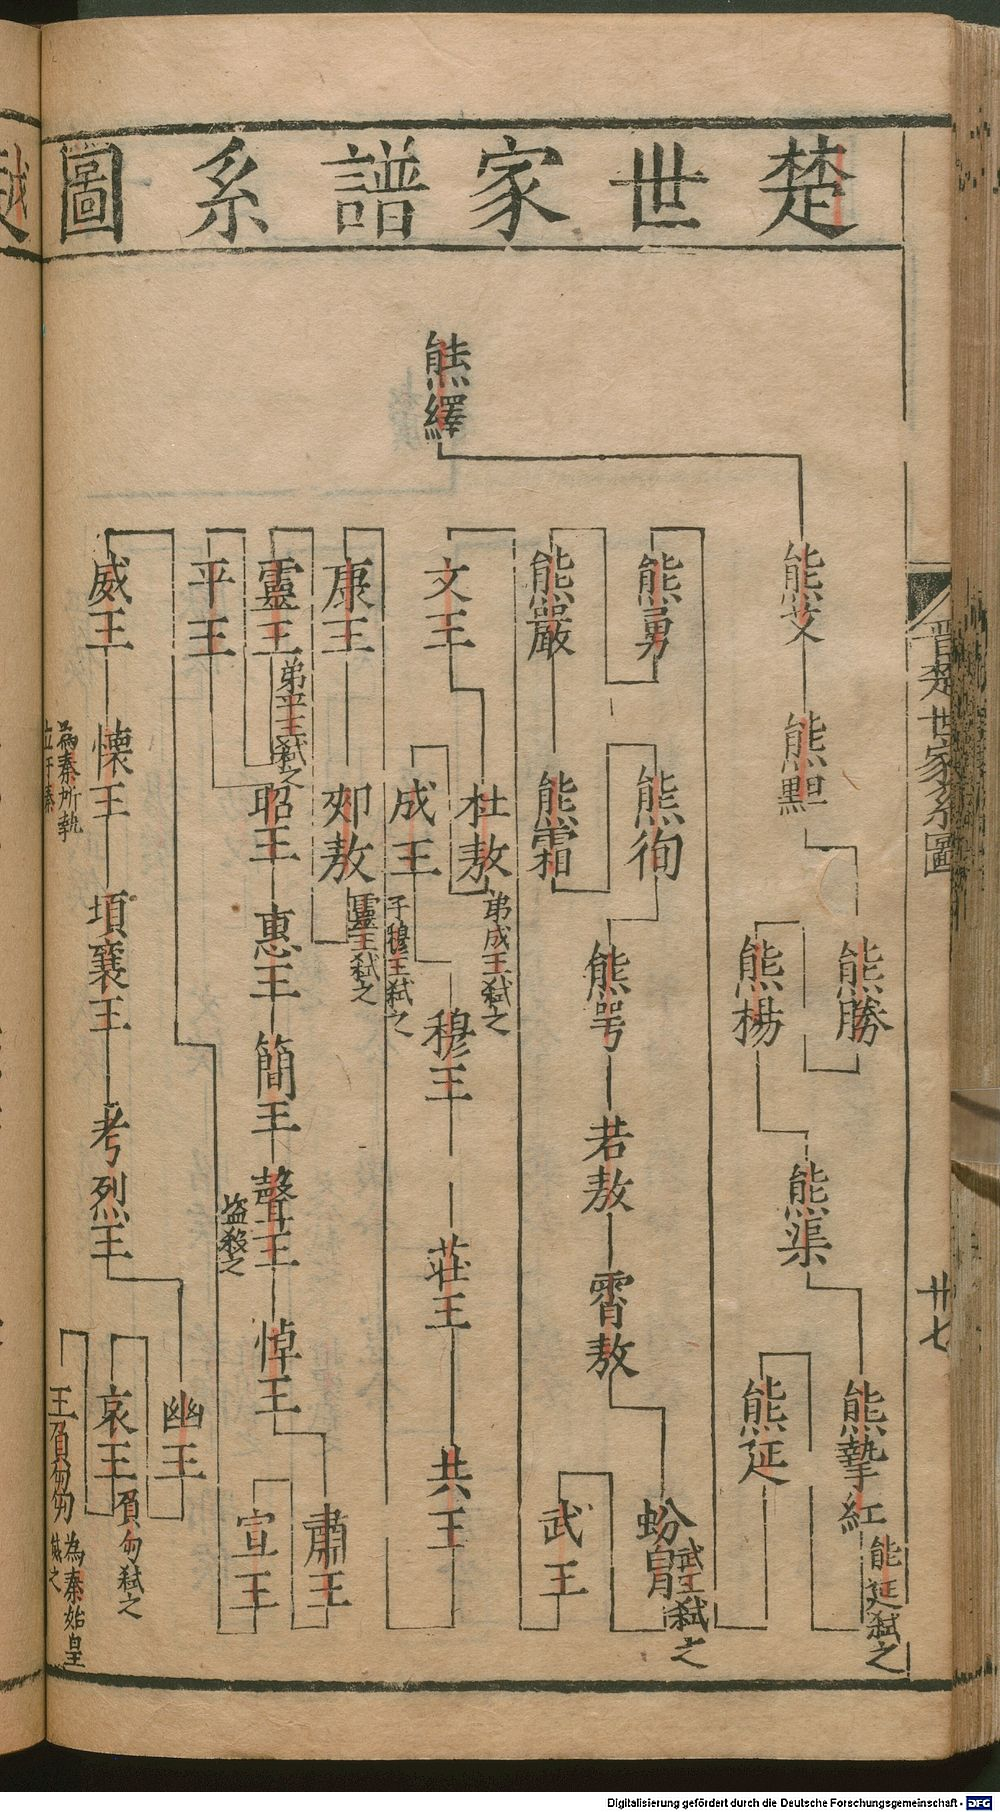 楚世家譜系圖
熊繹
熊艾
熊䵣
熊勝
熊楊
熊渠
熊摯紅
熊延弑之
熊延
熊勇
熊嚴
熊霜
熊徇
熊咢
若敖
霄敖
蚡冒
武王弑之
武王
文王
杜敖
弟成王弑之
成王
子穆王弑之
穆王
莊王
共王
康王
郟敖
靈王弑之
靈王
弟平王弑之
平王
昭王
惠王
簡王
聲王
盜殺之
悼王
肅王
宣王
威王
懷王
為秦所執
頃襄王
考烈王
幽王
哀王
負芻弑之
王負芻
為秦始皇
滅之
晋楚世家系圖
廿七
Digitalisierung gefördert durch die Deutsche Forschungsgemeinschaft - DFG